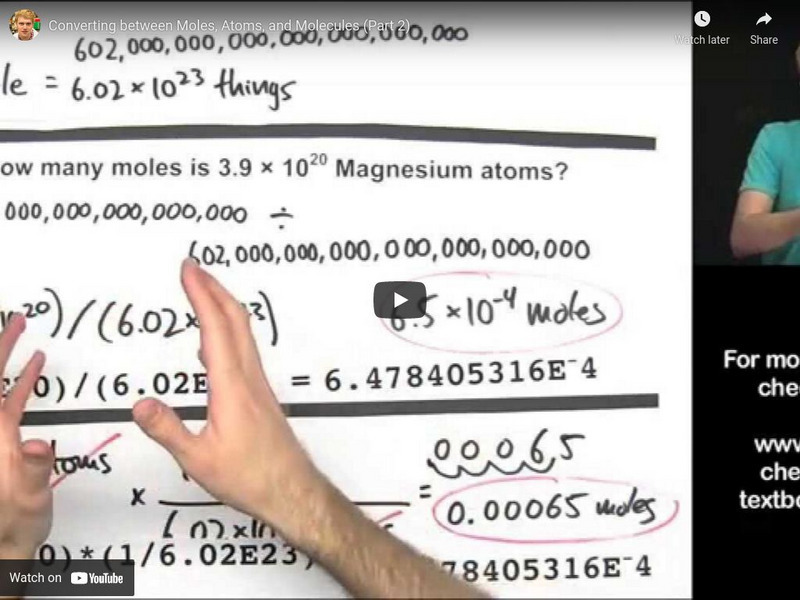 Converting between Moles, Atoms, and Molecules (Part 2)
Watch later
Share
602,000,000,000,000,000,000,000
le = 6.02 × 10²³ things
ow many moles is 3.9 × 10²⁰ Magnesium atoms?
000,000,000,000,000 ÷
602,000,000,000,000,000,000,000
²⁰)/(6.02×
6.5 × 10⁻⁴ moles
0)/(6.02E
= 6.478405316E⁻4
00065
toms
×
=
0.00065 moles
6.02×10
0)*(1/6.02E23)
78405316E⁻4
For mo
che
www
che
textbo
Watch on YouTube